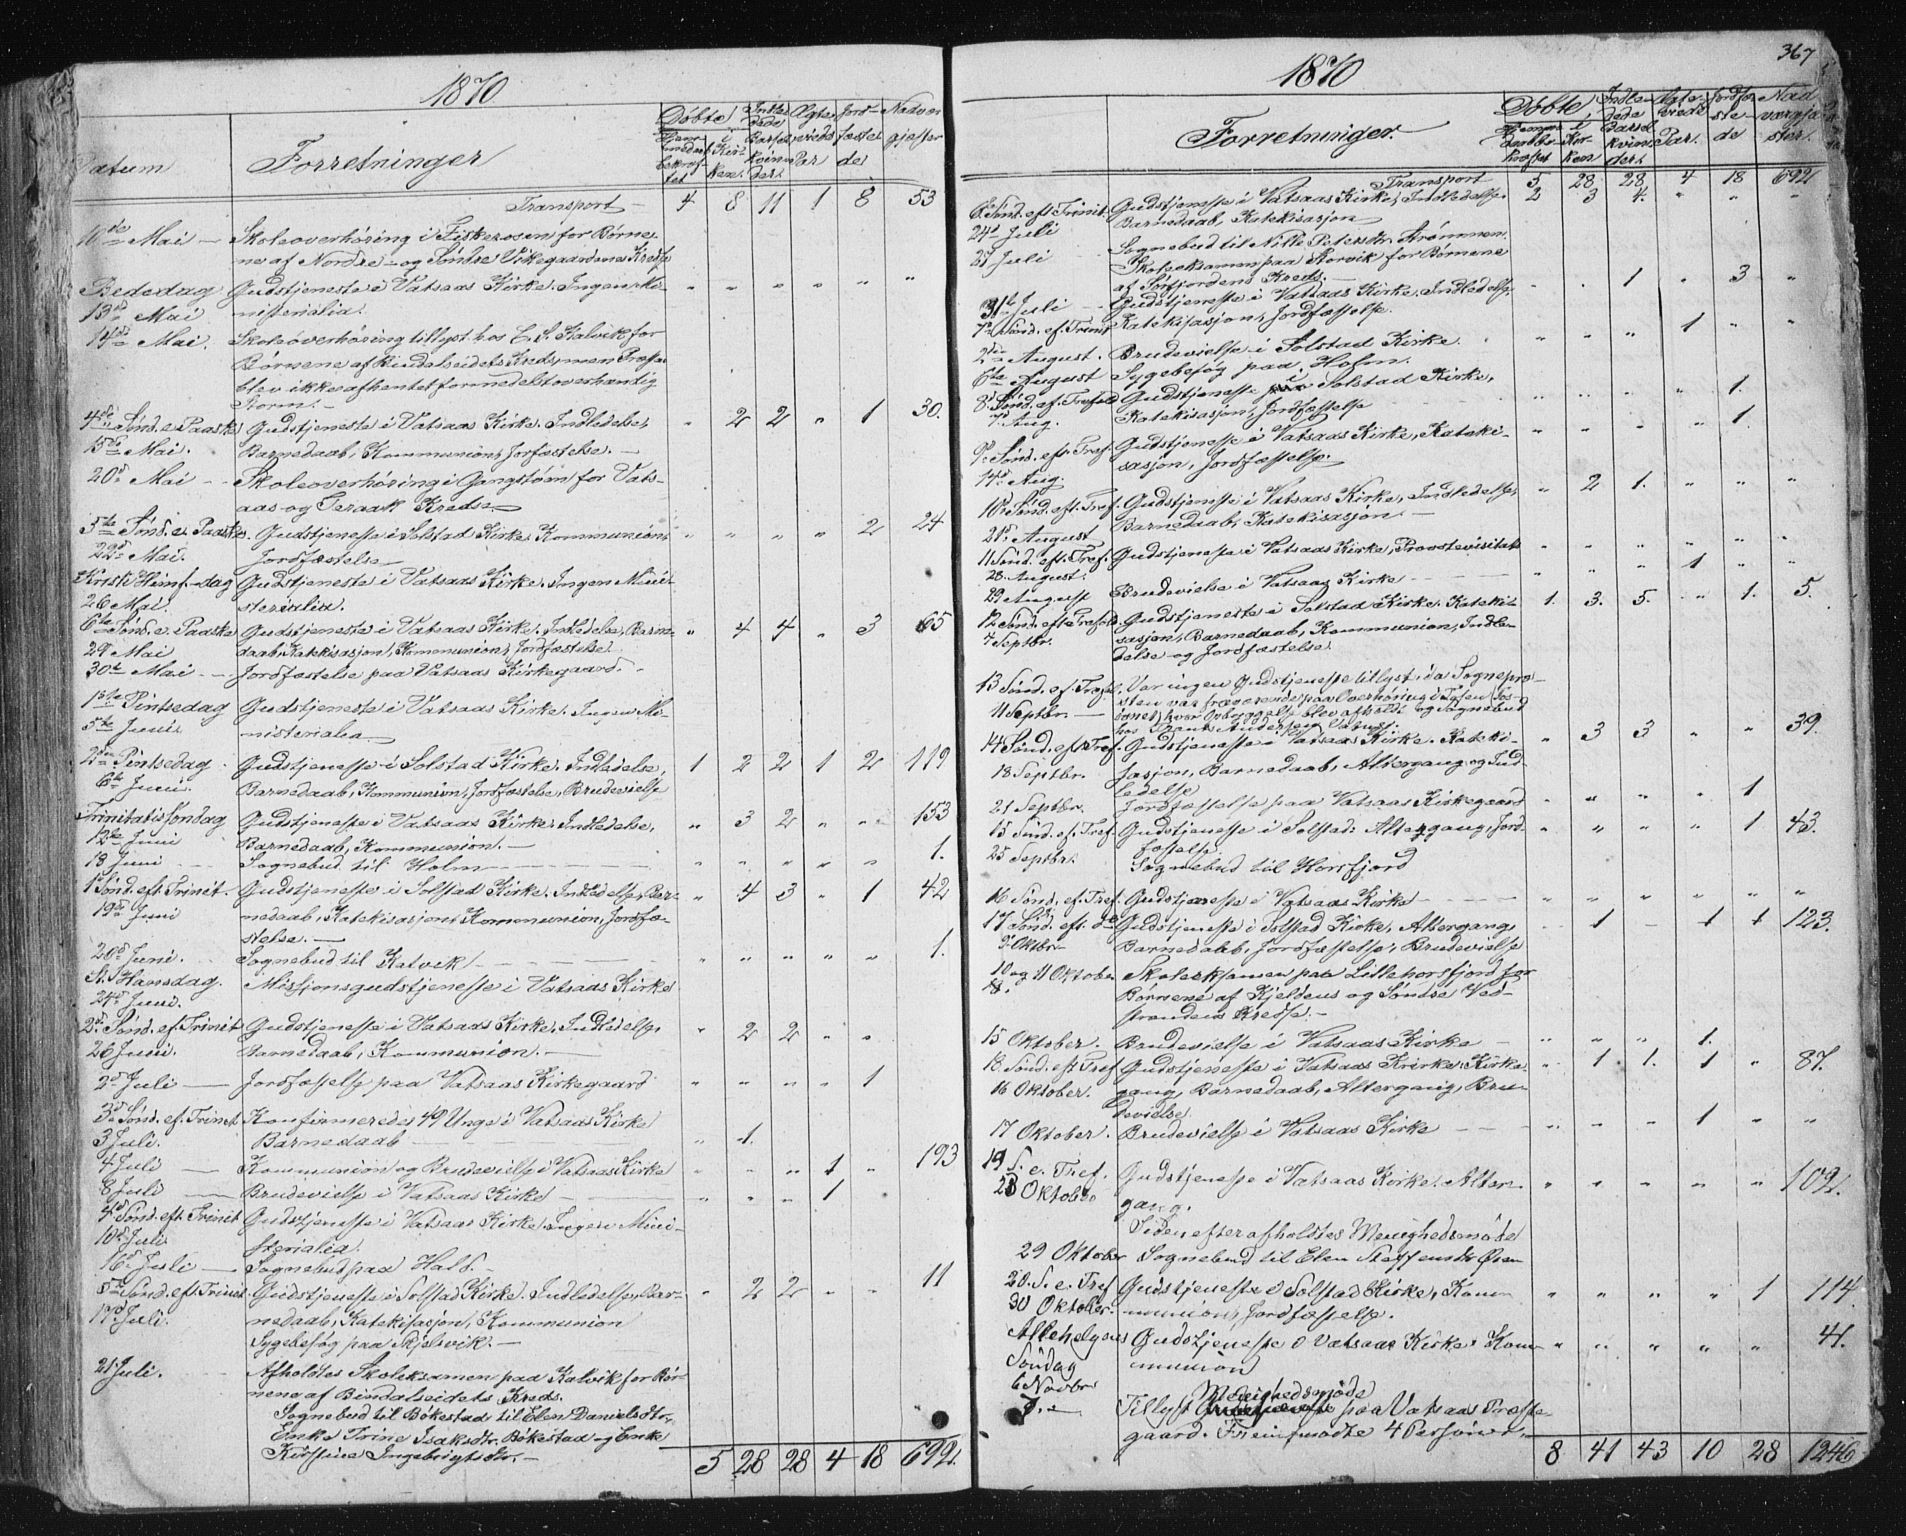 1870
Datum
Forretninger
Døbte
Hjemmedøbt bekræftet
i Kirken.
Indledede Barselkvinder.
Ægteviede Par
Jordfæstede
Nadvergjester
Transport – 4 8 11 1 8 53
10de Mai – Skoleoverhøring i Fiskerosen for Børne-
ne af Nordre- og Søndre Vikegaardenes Kreds
Bededag Gudstjeneste i Vatsaas Kirke. Ingen Mi- " " " " " "
13de Mai nisterialia.
14de Mai. Skoleoverhøring tillyst hos E. S. Kalvik for
Børnene af Bindalseidets Kreds men Præsten
blev ikke afhentet formedelst overhændig
Storm. –
4de Sønd. e. Paaske Gudstjeneste i Vatsaas Kirke. Indledelse, " 2 2 " 1 30.
15de Mai. Barnedaab, Kommunion, Jorfæstelse. –
20de Mai – Skoleoverhøring i Gangstøen for Vats-
aas og Teraak Kreds
5te Sønd. e. Paaske. Gudstjeneste i Solstad Kirke. Kommunion, " " " " 2 24
22de Mai. Jordfæstelse
Kristi Himf. dag Gudstjeneste i Vatsaas Kirke. Ingen Mini-
26 Mai. sterialia.
6te Sønd. e. Paaske Gudstjeneste i Vatsaas Kirke. Indledelse, Barne- " 4 4 " 3 65
29 Mai daab, Katekisasjon, Kommunion, Jordfæstelse
30te Mai – Jordfæstelse paa Vatsaas Kirkegaard. –
1ste Pintsedag Gudstjeneste i Vatsaas Kirke. Ingen Mi-
5te Juni nisterialia
2den Pintsedag Gudstjeneste i Solstad Kirke. Indledelse, 1 2 2 1 2 119
6te Juni. Barnedaab, Kommunion, Jordfæstelse, Brudevielse
Trinitatissøndag Gudstjeneste i Vatsaas Kirke. Indledelse, " 3 2 " " 153
12te Juni Barnedaab, Kommunion. –
13 Juni Sognebud til Holm " " " " " 1.
1ste Sønd. eft. Trinit. Gudstjeneste i Solstad Kirke. Indledelse, Bar- " 4 3 " 1 42
19de Juni nedaab, Katekisasjon, Kommunion, Jordfæ-
stelse. –
20de Juni. Sognebud til Kalvik " " " " " 1.
St. Hansdag. Missjonsgudstjeneste i Vatsaas Kirke
24de Juni.
2den Sønd. ef. Trinit Gudstjeneste i Vatsaas Kirke. Indledelse, " 2 2 " "
26 Juni. Barnedaab, Kommunion. –
2den Juli – Jordfæstelse paa Vatsaas Kirkegaard " " " " 1
3die Sønd. ef. Trinit Konfirmeredes 49 Unge i Vatsaas Kirke
3 Juli. Barnedaab " 1.
4 Juli – Kommunion og Brudevielse i Vatsaas Kirke " " " 1 " 193
8 Juli – Brudevielse i Vatsaas Kirke " " " 1
4de Sønd. eft. Trinit Gudstjeneste i Vatsaas Kirke. Ingen Mini-
10de Juli sterialia.
16de Juli – Sognebud paa Hald. –
5te Sønd. eft. Trinit Gudstjeneste i Solstad Kirke. Indledelse, Bar- " 2 2 " " 11
17de Juli. nedaab, Katekisasjon, Kommunion
Sygebesøg paa Skjelsvik. –
21 Juli. Afholdtes Skoleksamen paa Kalvik for Bør-
nene af Bindalseidets Kreds.
Sognebud til Bøkestad til Elen Danielsdtr,
Enke Trine Isaksdtr. Bøkestad og Enke
Kirstine Ingebrigtsdtr. –
5 28 28 4 18 692.
367
1870
Forretninger.
Døbte
Hjemmedaab bekræftet
i Kirken
Indledede Barselkvinder.
Ægteviede Par.
Jordfæstede
Nadvergjæster.
Transport 5 28 28 4 18 692
6te Sønd. eft. Trinit. Gudstjeneste i Vatsaas Kirke, Indledelse, 2 3 4. " " "
24de Juli Barnedaab, Katekisasjon
Sognebud til Nille Petersdtr. Strømmen.
25 Juli Skoleeksamen paa Storvik for Børnene
af Sørfjordens Kreds. –
31te Juli Gudstjeneste i Vatsaas Kirke. Indledelse, " . 1 " 3 "
7de Sønd. ef. Trinit Katekisasjon, Jordfæstelse.
2den August. Brudevielse i Solstad Kirke. " " " 1 " "
6te August Sygebesøg paa Holm.
8de Sønd. ef. Trefold Gudstjeneste i Solstad Kirke, " " " " 1.
7de Aug. Katekisasjon, Jordfæstelse
9de Sønd. eft. Tref. Gudstjeneste i Vatsaas Kirke, Kateki- " " " " 1.
14de Aug. sasjon, Jordfæstelse.
10de Sønd. eft. Tref. Gudstjeneste i Vatsaas Kirke, Indledelse, " 2 1. " " "
21de August Barnedaab, Katekisasjon. –
11 Sønd. eft. Tref. Gudstjeneste i Vatsaas Kirke, Provstevisitats " " " " " "
28. August.
29 August Brudevielse i Vatsaas Kirke " " " 1 " "
12 Sønd. eft. Trefold. Gudstjeneste i Solstad Kirke. Kateki- 1. 3. 5. " 1. 5.
4 Septbr. sasjon, Barnedaab, Kommunion, Indle-
delse og Jordfæstelse
13 Sønd. ef. Tref. Var ingen Gudstjeneste tillyst, da Sognepræ-
11 Septbr. – sten var fraværende paa Overhøring i Tosen (Tos-
botnet) hvor Opbyggelse blev afholdt og Sognebud
hos Brant Andersen Vatnet.
14 Sønd. eft. Tref. Gudstjeneste i Vatsaas Kirke. Kateki- " 3 3 " " 39.
18 Septbr. sasjon, Barnedaab, Altergang og Ind-
ledelse
21 Septbr. Jordfæstelse paa Vatsaas Kirkegaard " " " " 1
15 Sønd. ef. Tref. Gudstjeneste i Solstad: Altergang, Jord- " " " " 1 43.
25 Septbr. fæstelse.
Sognebud til Horsfjord
16 Sønd. ef. Tref. Gudstjeneste i Vatsaas Kirke – " " " " " "
17 Sønd. eft. do Gudstjeneste i Solstad Kirke, Altergang, 1 – 1 1 123.
9de Oktbr Barnedaab, Jordfæstelse, Brudevielse
10 og 11 Oktober Skoleeksamen paa Lillehorsfjord for
Børnene af Kjeldens og Søndre Ved-
strandens Kredse. –
15 Oktober. Brudevielse i Vatsaas Kirke – " " " 1.
18. Sønd. eft Tref. Gudstjeneste i Vatsaas Kirke. Kirke- " 1 1. 1 " 87.
16 Oktober. gang, Barnedaab, Altergang, Bru-
devielse
17 Oktober. Brudevielse i Vatsaas Kirke – " " " 1 " "
19 S. e. Tref. Gudstjeneste i Vatsaas Kirke. Alter- " " " " " 102.
23 Oktober gang.
Siden efter afholdtes Menighedsmøde
29 Oktober Sognebud til Elen Steffensdtr Øren
20. S. e. Tref Gudstjeneste i Solstad Kirke, Kom- " " " " 1 114.
30 Oktober. munion, Jordfæstelse.
Allehelgens Gudstjeneste i Vatsaas Kirke. Kom- " " " " " 41.
Søndag munion
6 Novbr
Menighedsmøde
Tillyst paa Vatsaas Præste-
gaard. Fremmødte 4 Personer. –
8 41 43 10 28 1246